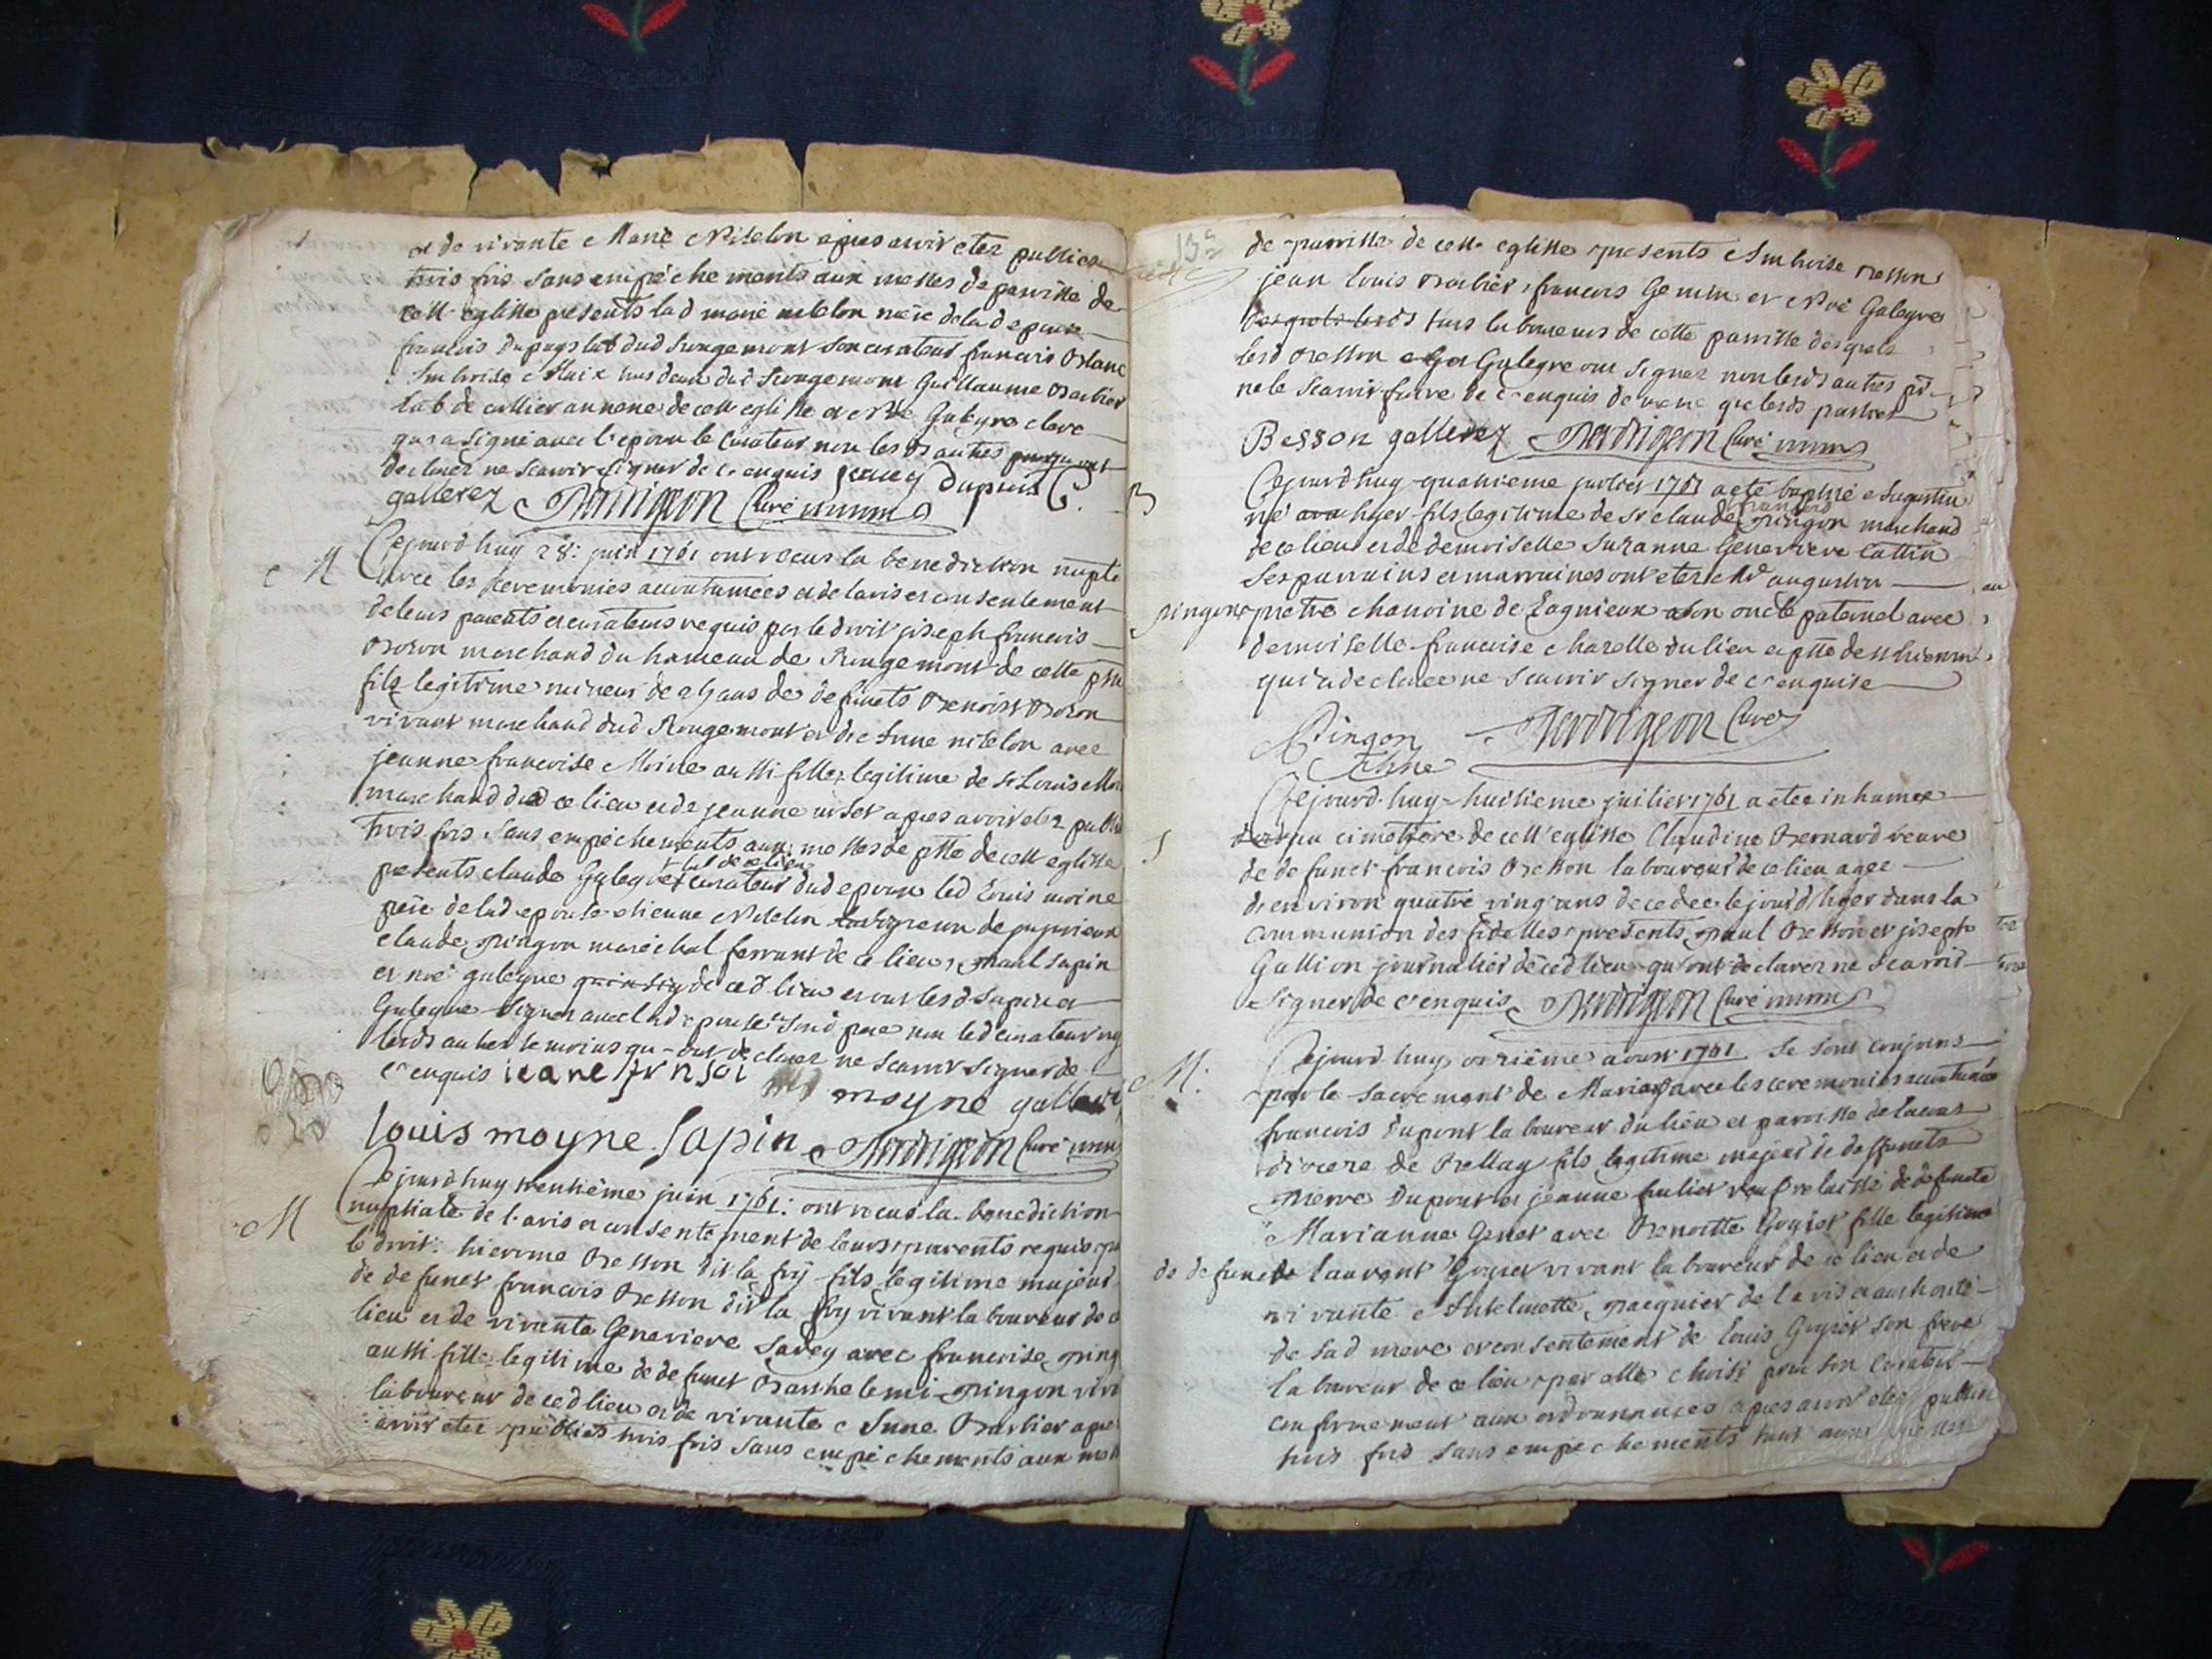 et de vivante Marie Nitelon apres avoir etez publies
trois fois sans empêchements aux messes de parrisse de
cett' eglisse presents lad marie nitelon mère de lad epouse
francois dupuys lab dud rougemont son curateur francois Blanc
Ambroise tous deux dud Rougemont Guillaume Barbier
lab de annexe de cett eglisse et Noé Galeyre clerc
qui a signé avec l'epoux le curateur non les ds autres
declarez ne scavoir signer de ce enquis Dupuis
gallerez Perrigeon Curé
M
Cejourd'huy 28e juin 1761 ont recus la benediction nuptle
avec les ceremonies accoutumées et de lavis et consentement
de leurs parents et curateurs requis par le droit joseph francois
Boron marchand du hameau de Rougemont de cette
fils legitime mineur de ans de defunts Benoist Boron
vivant marchand dud Rougemont et d'Anne nitelon avec
jeanne francoise Moine aussi fille legitime de Sr Louis
marchand dud ce lieu et de jeanne apres avoir etez
trois fois sans empêchements aux messes de psse de cett eglisse
lab de ce lieu
presents claude Galeyre curateur dud epoux led Louis moine
père de lad epouse etienne Nitelon vigneron de
claude pingon maréchal ferrant de ce lieu, paul sapin
et noé galeyre de ced lieu et ont lesd sapin et
Galeyre signez avec lad epouse et son d pere non led curateur ny
lesds autres temoins qu'ont declarez ne scavoir signer de
ce enquis
moyne
louis moyne sapin Perrigeon Curé
M
Cejourd'huy trentième juin 1761: ont recus la benediction
nuptiale de l'avis et consentement de leurs parents requis
le droit: hierome Besson dit la foy fils legitime majeur
de defunct francois Besson dit la foy vivant laboureur de
lieu et de vivante Genevieve Sadey avec francoise
aussi fille legitime de defunct Barthelemi Pingon
laboureur de ced lieu et de vivante Anne Barbier
avoir etez publies trois fois sans empêchements aux
de parrisse de cett eglisse presents Ambroise Besson
jean louis Barbier, francois Genin et Noé Galeyre
tous laboureurs de cette parrisse desquels
lesd Besson et Galeyre ont signez non lesds autres
ne le scavoir faire de ce enquis de mene que lesds parties
Besson gallerez Perrigeon Curé
B
Cejourd'huy quatrieme juillet 1761 a eté baptisé Augustin
francois
né hyer fils legitime de Sr claude pingon marchand
de ce lieu et de demoiselle Suzanne Genevieve Cattin
Ses parrains et marraines ont etez Mr augustin
pingon pretre chanoine de Lagnieux son oncle paternel avec
demoiselle francoise chazelle du lieu et psse de
qui a declaree ne scavoir signer de ce enquise
Pingon Perrigeon Curé
S
Cejourd'huy huitieme juillet 1761 a etee inhumee
au cimetiere de cett' eglisse Claudine Bernard veuve
de defunct francois Besson laboureur de ce lieu agee
d'environ quatre vingt ans decedee le jour d'hyer dans la
communion des fidelles presents paul Besson et joseph
Gallion journalier de ced lieu qu'ont declarez ne scavoir
signer de ce enquis Perrigeon Curé
M:
Cejourd'huy onzième aoust 1761 se sont conjoins
par le sacrement de Mariage avec les ceremonies accoutumées
francois dupont laboureur du lieu et parrisse de
diocese de Bellay fils legitime majeur de deffuncts
pierre dupont et jeanne relaissé de defuncte
Marianne Genet avec Benoitte Goyet fille legitime
de defunct laurent Goyet vivant laboureur de ce lieu et de
vivante Anthelmette pacquier de l'avis et authorité
de sad mere et consentement de Louis Goyet son frere
laboureur de ce lieu par elle choisi pour son curateur
conformement aux ordonnances apres avoir etez publies
trois fois sans empechements tant aux messes